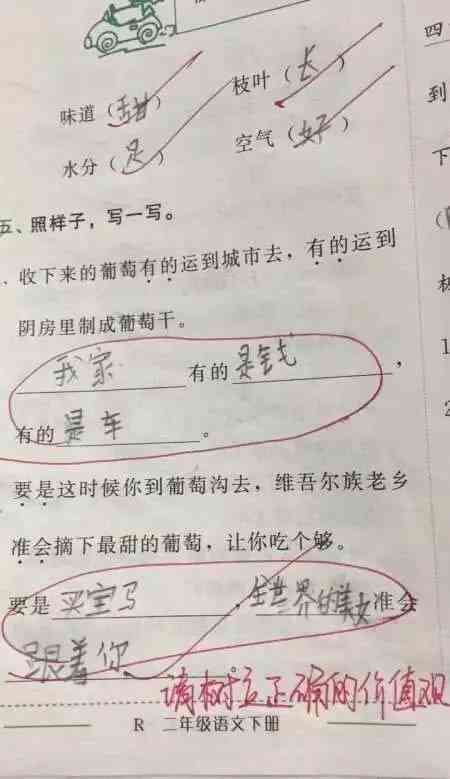 味道（甜） 枝叶（长）
水分（足） 空气（好）
五、照样子，写一写。
收下来的葡萄有的运到城市去，有的运到
阴房里制成葡萄干。
我家有的是钱，
有的是车。
要是这时候你到葡萄沟去，维吾尔族老乡
准会摘下最甜的葡萄，让你吃个够。
要是买宝马，全世界的美女准会
跟着你
请树立正确的价值观
R 二年级语文下册
四
到
下
1
2